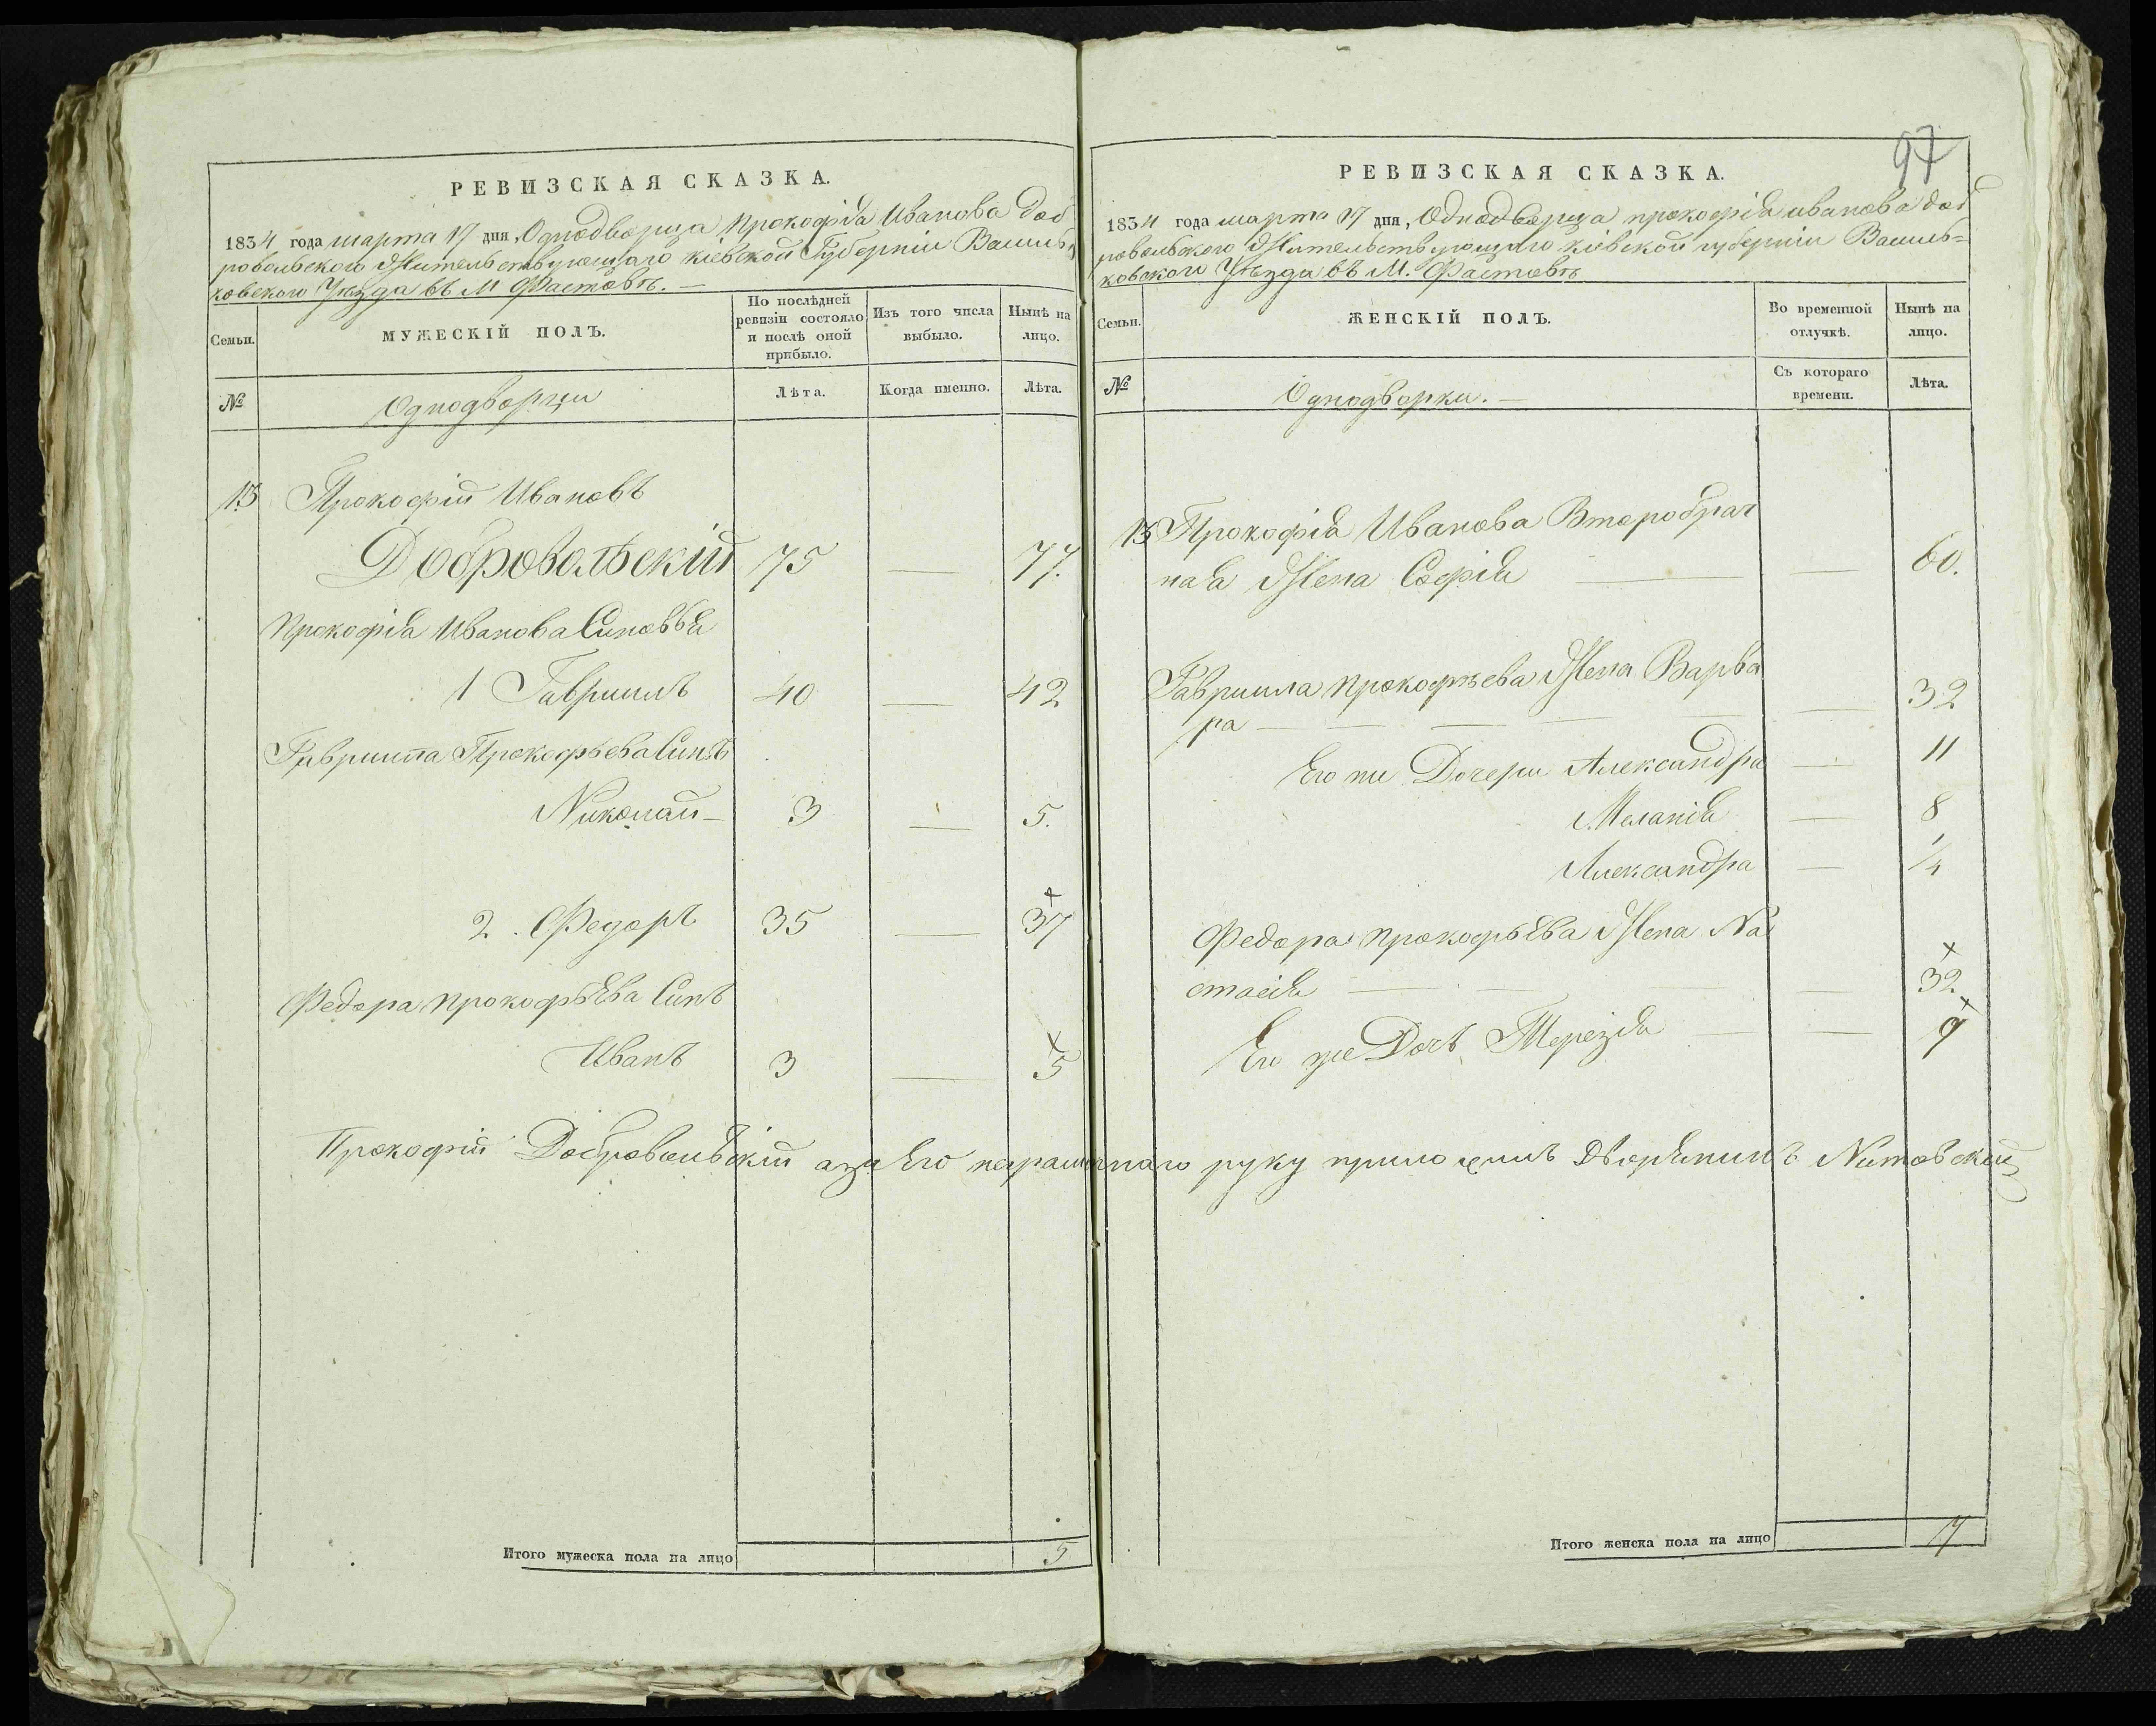 97
РЕВИЗСКАЯ СКАЗКА.
1834 года марта 17 дня, Однодворца Прокофія Иванова Доб
ровольского Жительствующаго кіевской Губерніи Василь
ковского Уезда въ М Фастовѣ. —
Семьи.
МУЖЕСКІЙ ПОЛЪ.
По послѣдней
ревизіи состояло
и послѣ оной
прибыло.
Изъ того числа
выбыло.
Нынѣ на
лицо.
№
Однодворци
Лѣта.
Когда именно.
Лѣта.
13 Прокофій Ивановъ
Добровольскій 75 — 77.
Прокофія Иванова Синовья
1 Гавриилъ 40 — 42
Гавриила Прокофьева Синъ
Николай — 3 — 5.
2. Федоръ 35 — 37
Федора Прокофьева Синъ
Иванъ 3 — 5
Прокофій Добровольскій а за Его неграмотнаго руку приложилъ Дворянинъ
Итого мужеска пола на лицо 5
РЕВИЗСКАЯ СКАЗКА.
1834 года марта 17 дня, Однодворца прокофія иванова доб
ровольского Жительствующаго кіевской губерніи Василь=
ковского Уезда въ М. Фастовѣ
Семьи.
ЖЕНСКІЙ ПОЛЪ.
Во временной
отлучкѣ.
Нынѣ на
лицо.
№
Однодворки. —
Съ котораго
времени.
Лѣта.
13 Прокофія Иванова Второбрач
ная Жена Софія — — 60.
Гавриила Прокофьева Жена Варва
ра — — — — — — 32
Его же Дочери Александра — 11
Меланія — 8
Александра — 1/4
Федора Прокофьева Жена На
стасія — — — 32
Его же Дочь Терезія — — 9
Итого женска пола на лицо 7